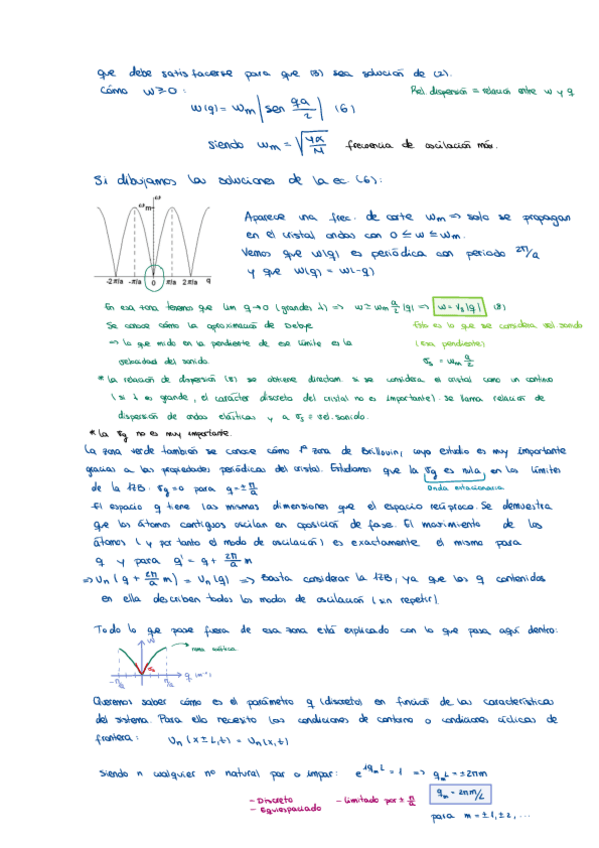 que debe satisfacerse para que (3) sea solución de (2).
Cómo w≥0:
Rel. dispersión = relación entre w y q
w(q) = wm |sen qa/2| (6)
siendo wm = √(4α/M) frecuencia de oscilación máx.
Si dibujamos las soluciones de la ec (6):
ω
ωm
-2π/a -π/a 0 π/a 2π/a q
Aparece una frec. de corte wm => solo se propagan
en el cristal ondas con 0 ≤ w ≤ wm.
Vemos que w(q) es periódica con periodo 2π/a
y que w(q) = w(-q)
En esa zona tenemos que lim q→0 (grandes λ) => w ≃ wm a/2 |q| => w = vs|q| (8)
Se conoce cómo la aproximación de Debye
Esto es lo que se considera vel. sonido
=> lo que mido en la pendiente de ese límite es la
(esa pendiente)
velocidad del sonido
vs = wm a/2
* La relación de dispersión (8) se obtiene directam. si se considera el cristal como un continuo
(si λ es grande, el carácter discreto del cristal no es importante). Se llama relación de
dispersión de ondas elásticas y a vs = vel. sonido.
* La vg no es muy importante.
La zona verde también se conoce cómo 1ª zona de Brillouin, cuyo estudio es muy importante
gracias a las propiedades periódicas del cristal. Estudiamos que la vg es nula, en los límites
de la 1ZB. vg=0 para q=±π/a
Onda estacionaria
El espacio q tiene las mismas dimensiones que el espacio recíproco. Se demuestra
que los átomos contiguos oscilan en oposición de fase. El movimiento de los
átomos (y por tanto el modo de oscilación) es exactamente el mismo para
q y para q' = q + 2π/a m
=> Un (q + 2π/a m) = Un (q) => Basta considerar la 1ZB, ya que los q contenidos
en ella describen todos los modos de oscilación (sin repetir).
Todo lo que pase fuera de esa zona está explicado con lo que pasa aquí dentro:
w
-π/a π/a q (m⁻¹)
Queremos saber cómo es el parámetro q (discreto) en función de las características
del sistema. Para ello necesito las condiciones de contorno o condiciones cíclicas de
frontera: Un (x±L,t) = Un (x,t)
siendo n cualquier no natural par o impar: e^iqmL = 1 => qmL = ±2πm
- Discreto
- Limitado por ± π/a
qm = 2πm/L
- Equiespaciado
para m = ±1, ±2, ...